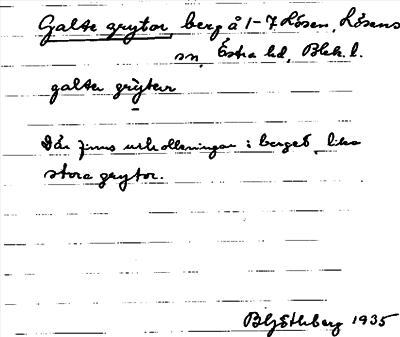 Galte grytor berg å 1-7 Lösen, Lösens
sn, Östra hd, Blek. l.
galter gryter
Där finns urholkningar i berget lika
stora grytor.
B Göthberg 1935